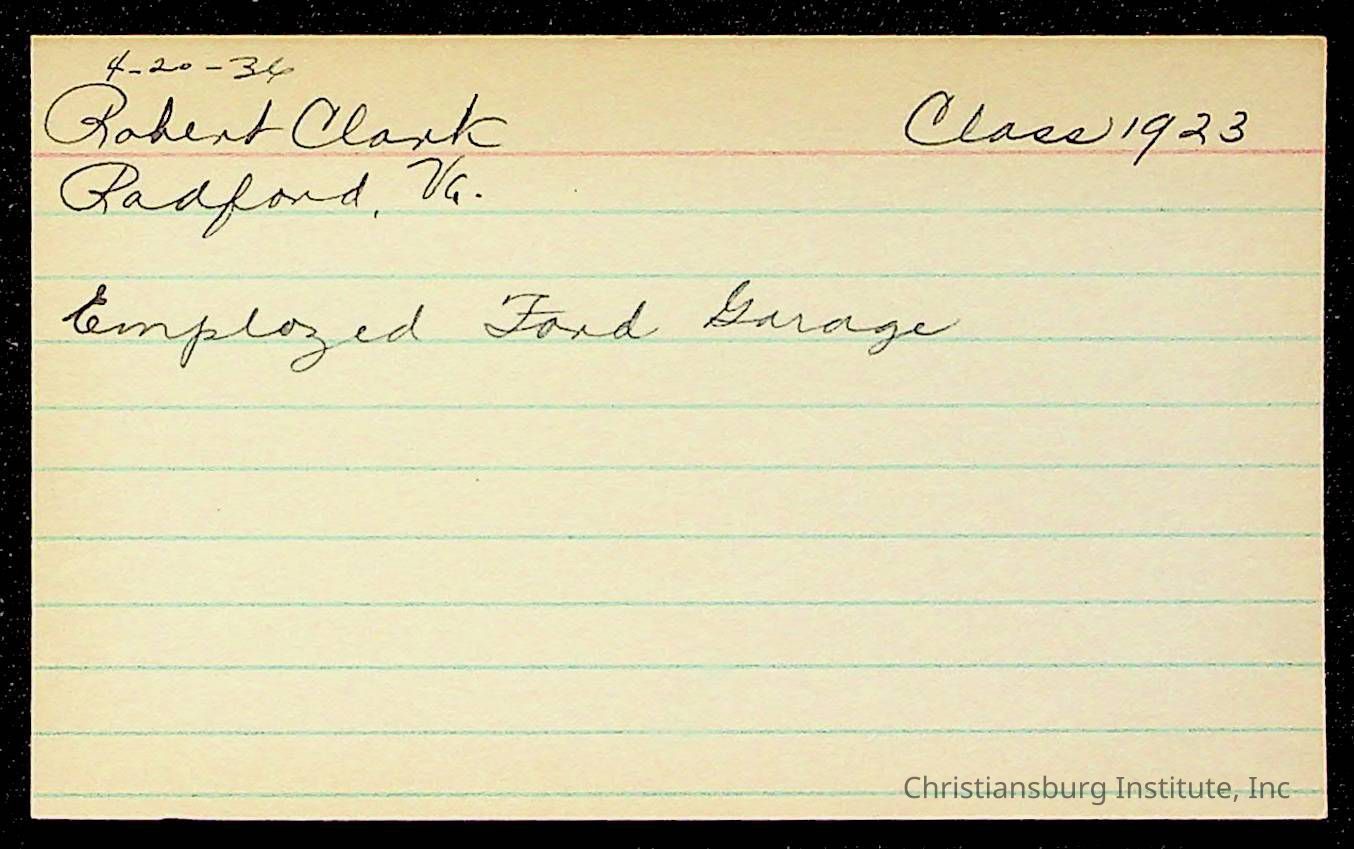 4-20-36
Robert Clark Class 1923
Radford, Va.
Employed Ford Garage
Christiansburg Institute, Inc